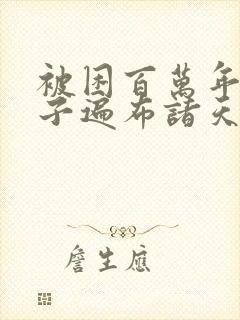 被困百萬年
子遍布諸天
詹生應